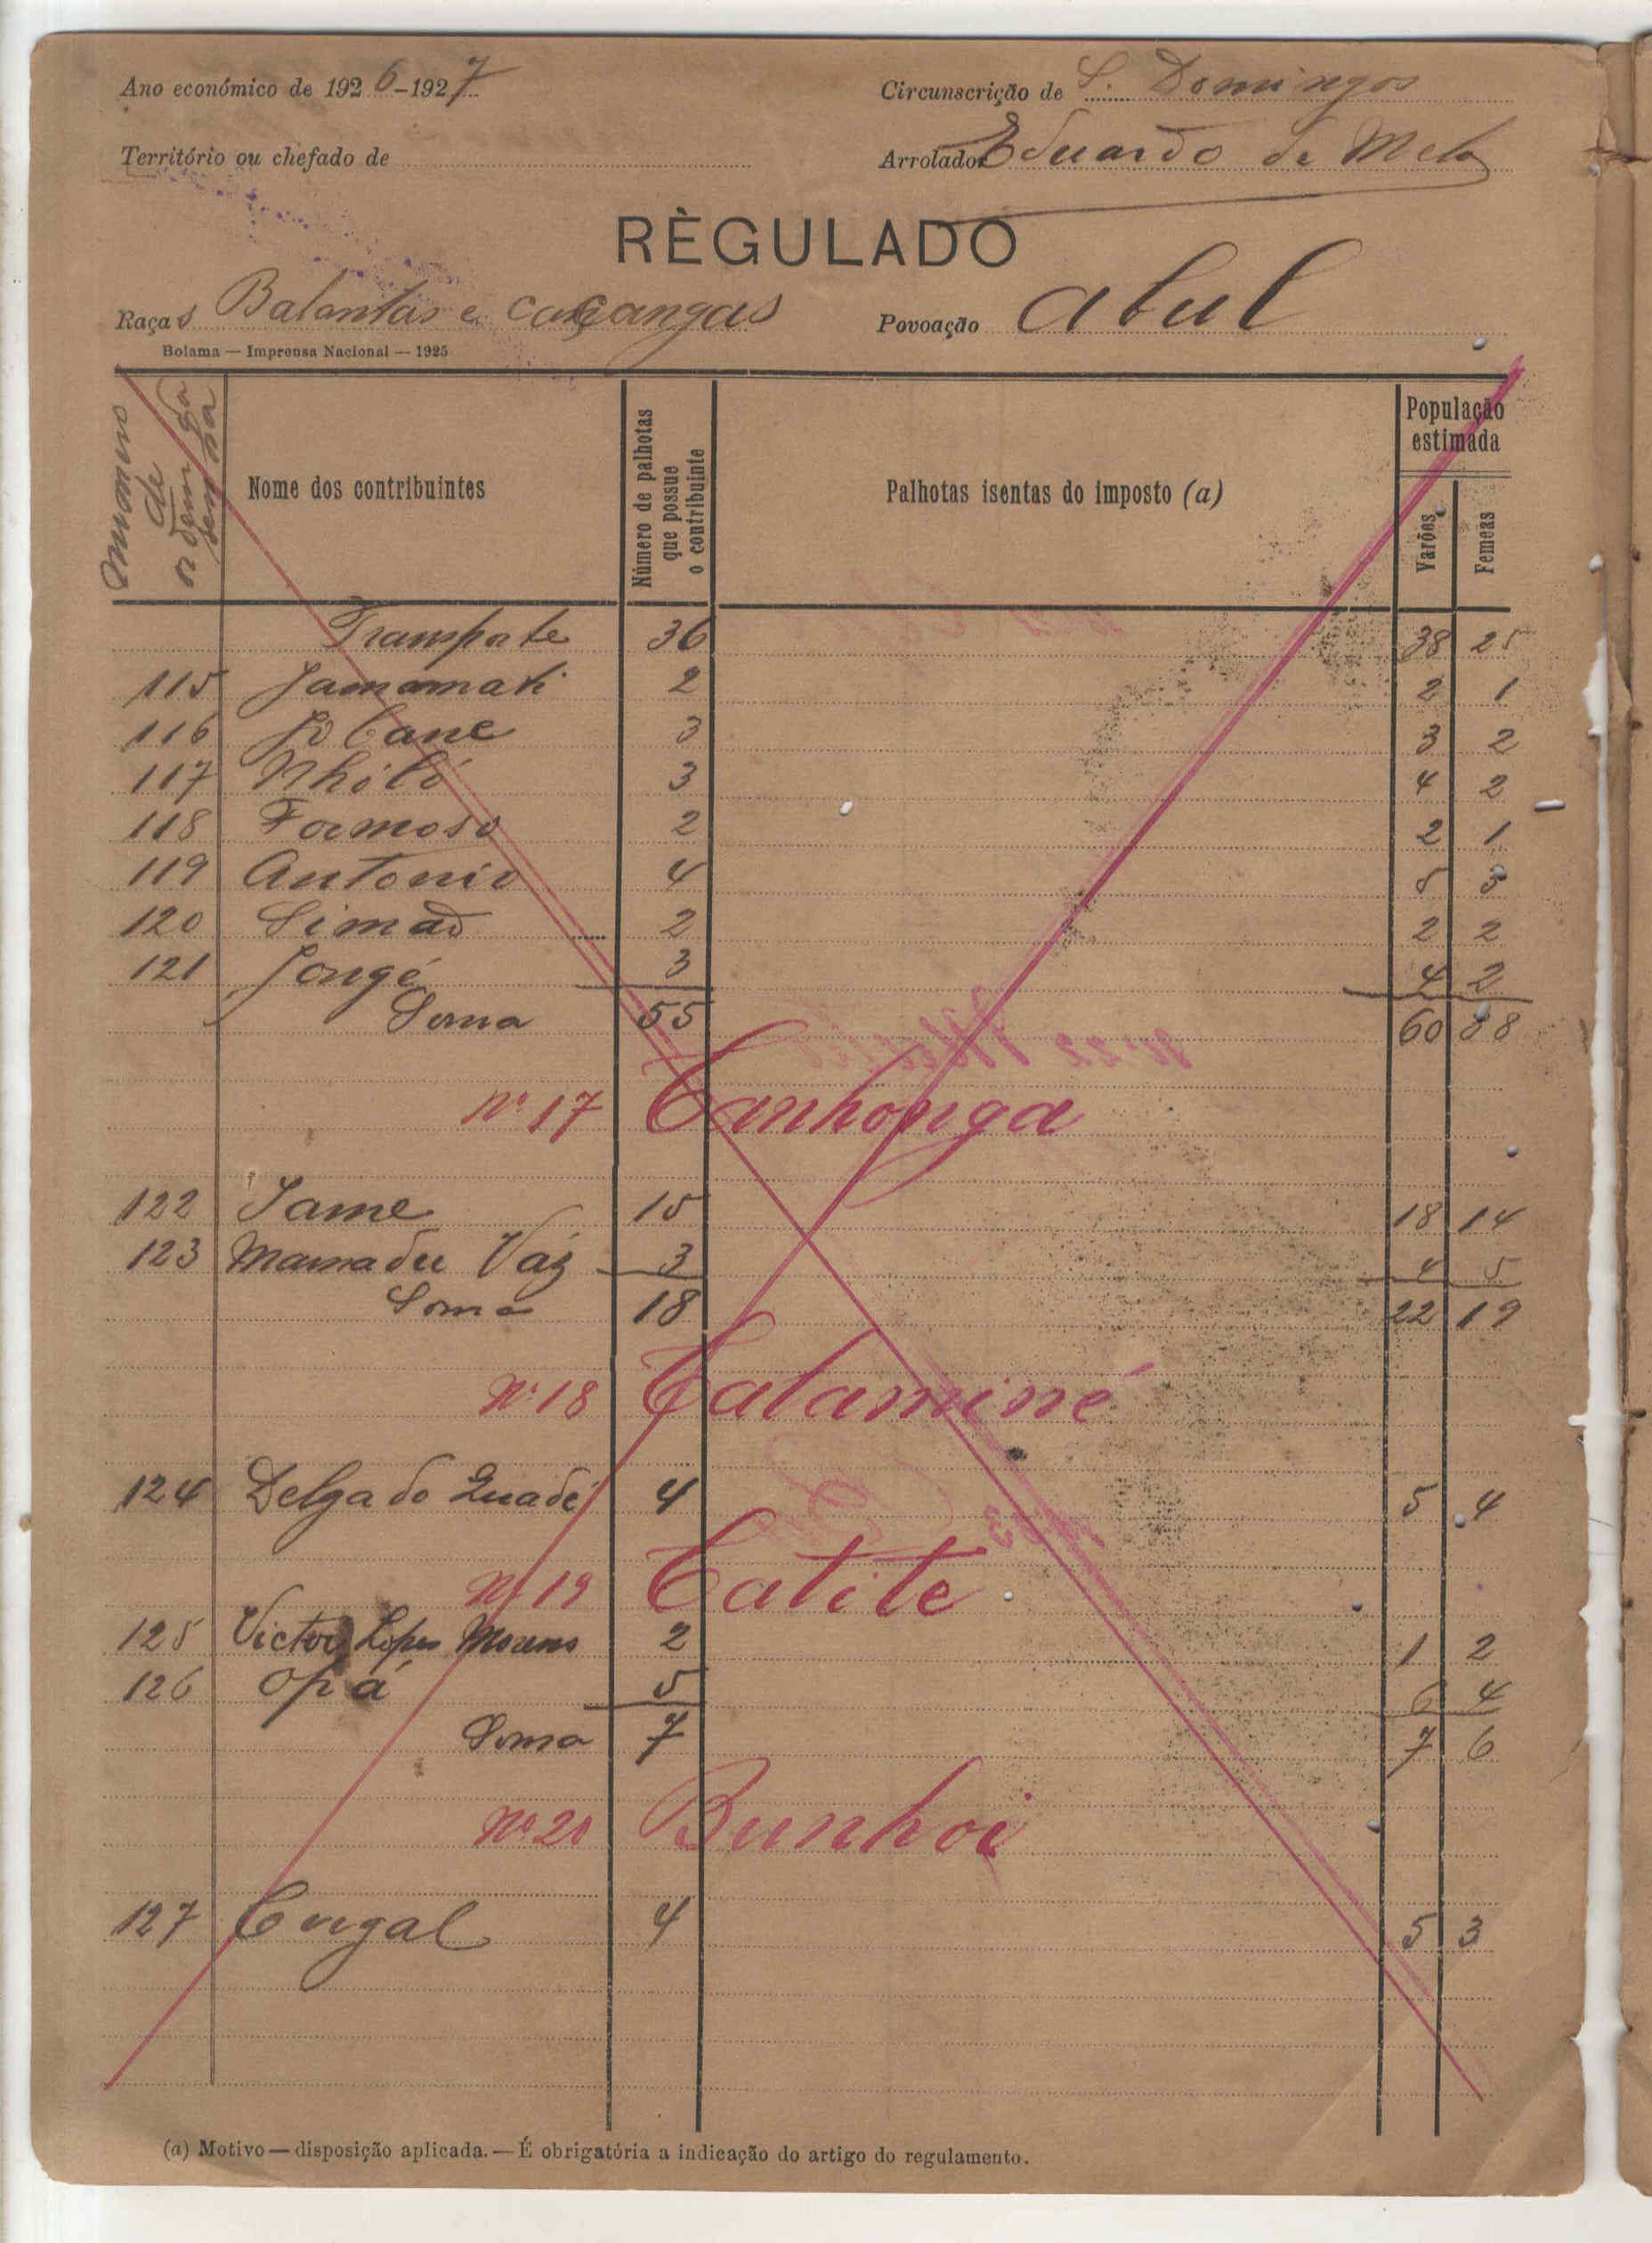 Ano económico de 1926-1927
Circunscrição de S. Domingos
Território ou chefado de
Arrolador Eduardo de Melo
RÈGULADO
Raças Balantas e cassangas
Povoação Abul
Bolama — Imprensa Nacional — 1925
Numero de ordem da senha
Nome dos contribuintes
Número de palhotas que possue o contribuinte
Palhotas isentas do imposto (a)
População estimada
Varões
Femeas
Transporte 36 38 25
115 Jamamati 2 2 1
116 Jobane 3 3 2
117 Nhiló 3 4 2
118 Formoso 2 2 1
119 Antonio 4 5 3
120 Simão 2 2 2
121 Jongé 3 4 2
Soma 55 60 38
Nº 17 Canhonga
122 Jame 15 18 14
123 Mamadu Váz 3 4 5
Soma 18 22 19
Nº 18 Calaminé
124 Delgado Quadé 4 5 4
Nº 19 Catite
125 Victor Lopes Moreno 2 1 2
126 Opá 5 6 4
Soma 7 7 6
Nº 20 Bunhoi
127 Cugal 4 5 3
(a) Motivo — disposição aplicada. — É obrigatória a indicação do artigo do regulamento.